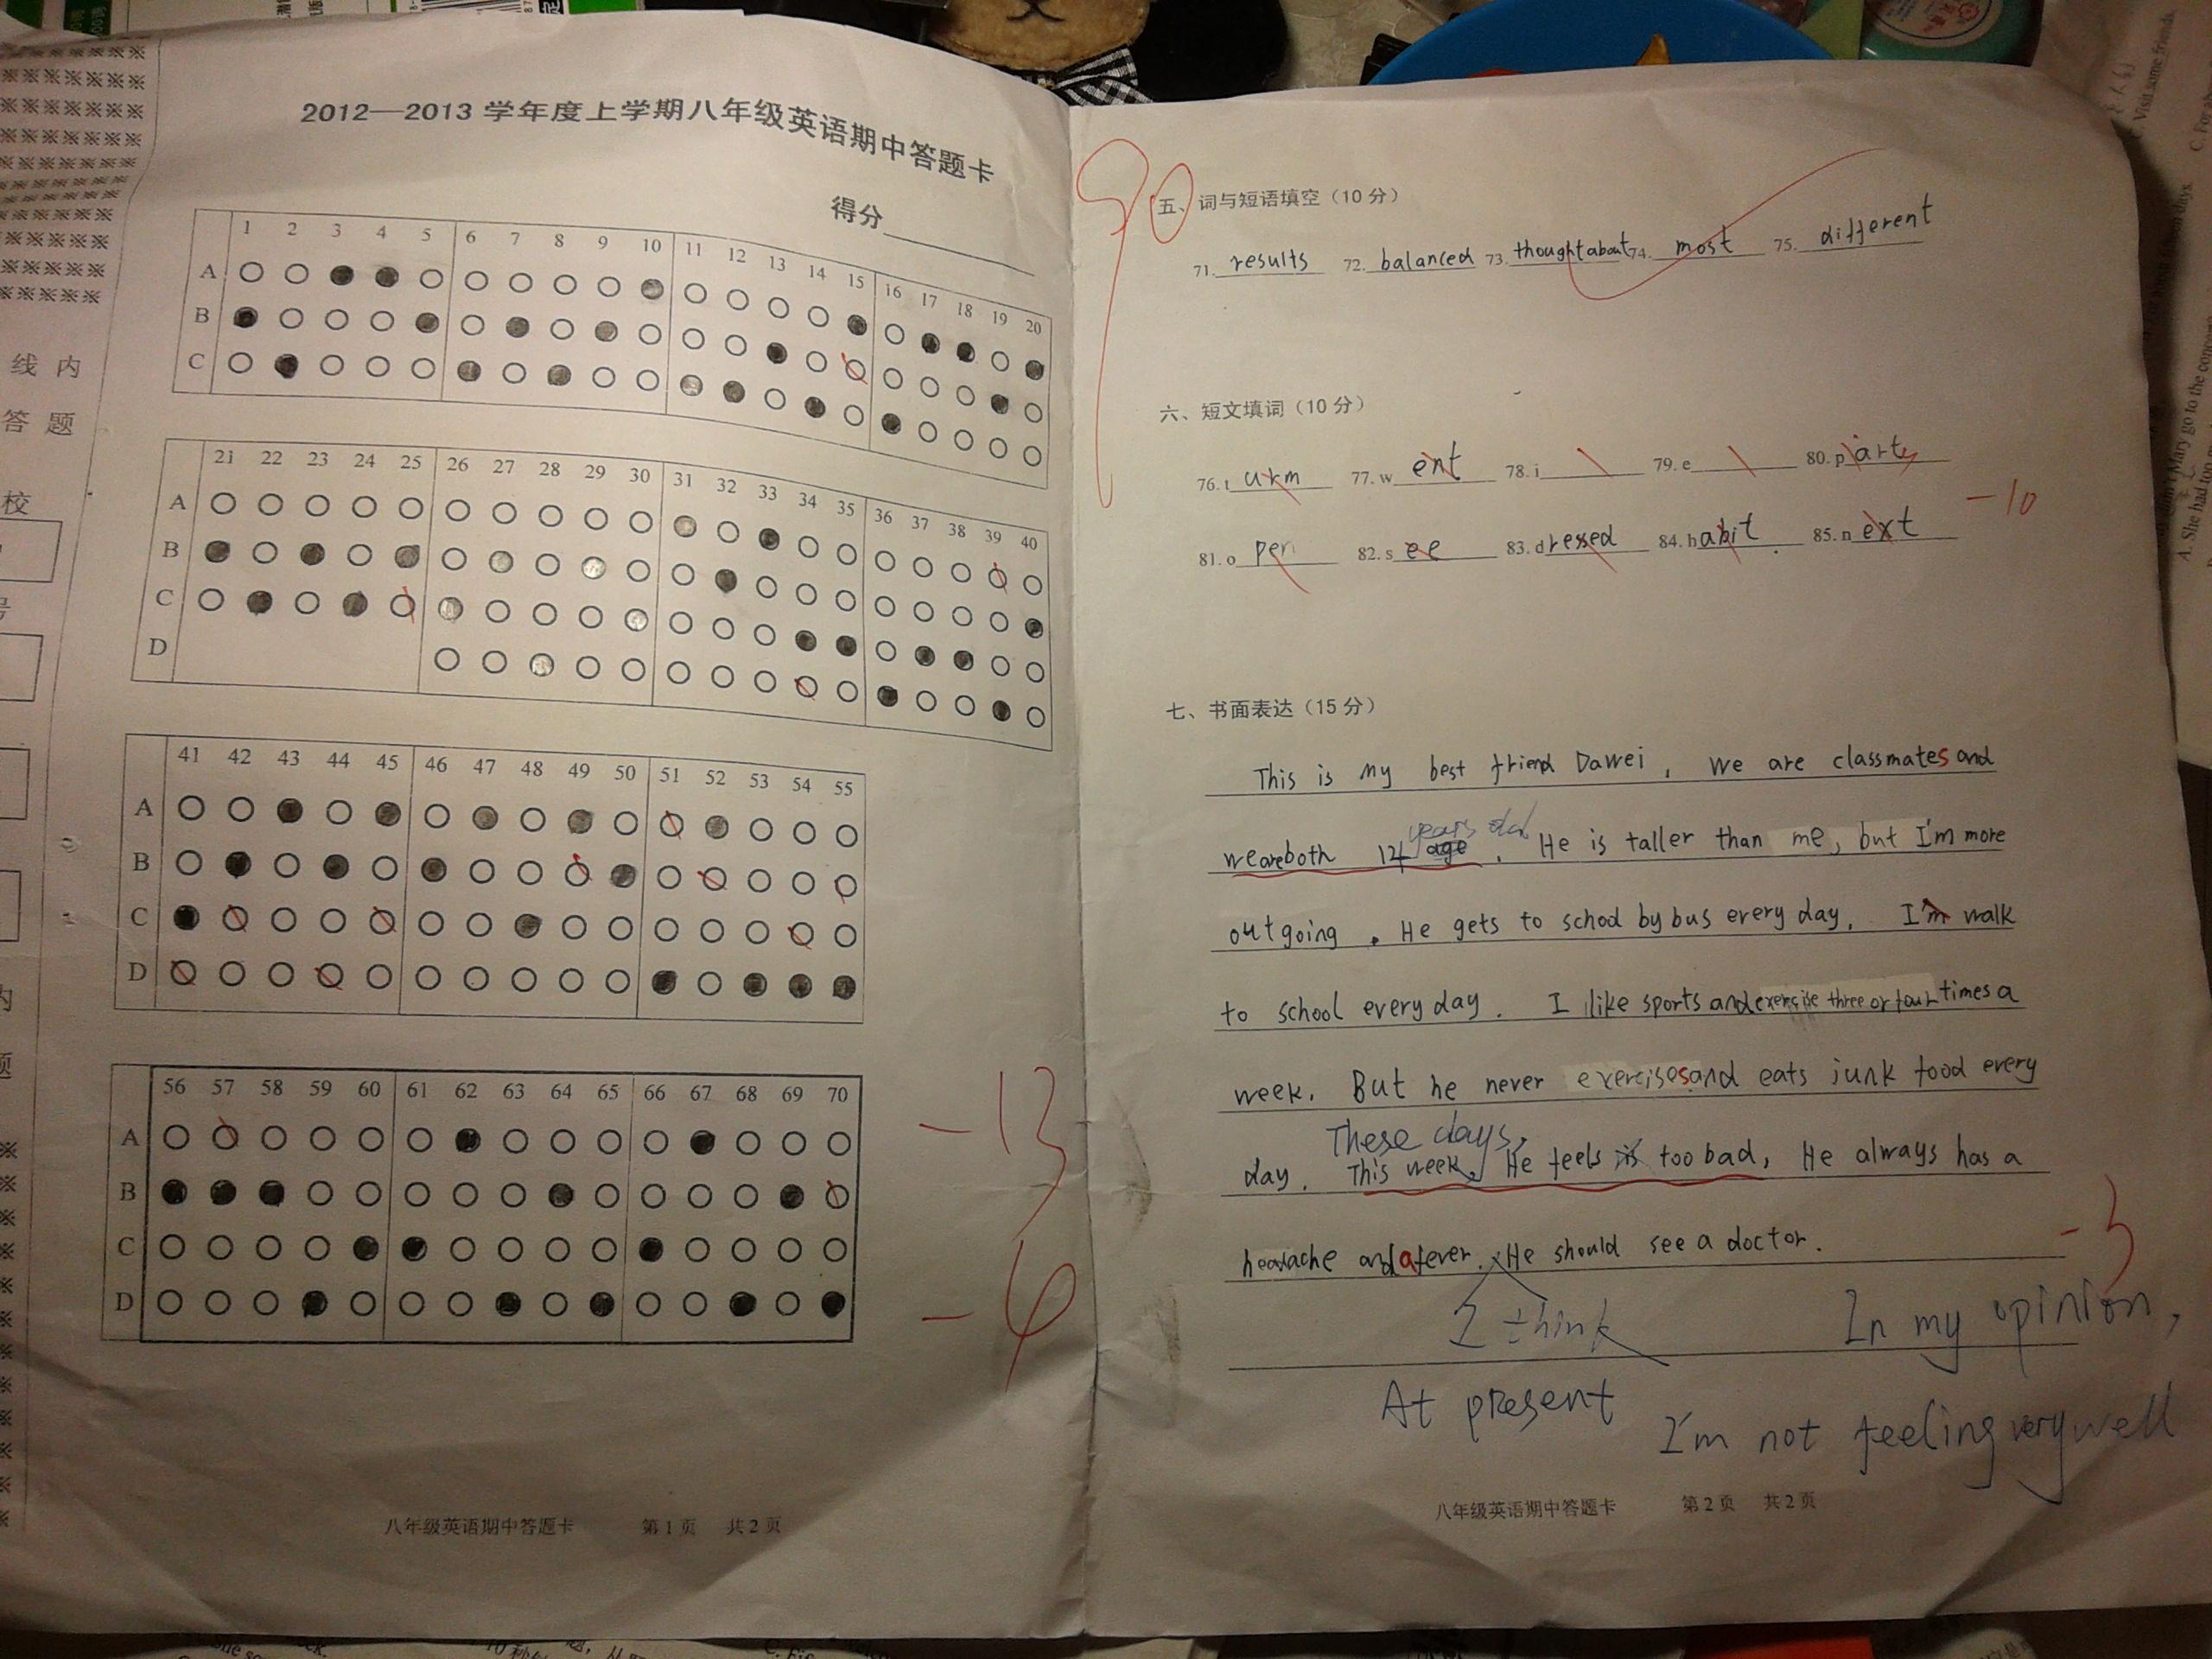 2012—2013 学年度上学期八年级英语期中答题卡
得分
1 2 3 4 5 6 7 8 9 10 11 12 13 14 15 16 17 18 19 20
A
B
C
21 22 23 24 25 26 27 28 29 30 31 32 33 34 35 36 37 38 39 40
A
B
C
D
41 42 43 44 45 46 47 48 49 50 51 52 53 54 55
A
B
C
D
56 57 58 59 60 61 62 63 64 65 66 67 68 69 70
A
B
C
D
-13
八年级英语期中答题卡 第1页 共2页
线内
答题
校
90
五、词与短语填空（10 分）
71. results 72. balanced 73. thought about 74. most 75. different
六、短文填词（10 分）
76. t urm 77. w ent 78. i 79. e 80. p arty
-10
81. o pen 82. s ee 83. d ressed 84. h abit 85. n ext
七、书面表达（15 分）
This is my best friend Dawei, We are classmates and
years old
we are both 14 age. He is taller than me, but I'm more
outgoing. He gets to school by bus every day. I'm walk
to school every day. I like sports and exercise three or four times a
week. But he never exercises and eats junk food every
These days,
day. This week, He feels is too bad, He always has a
headache and a fever. He should see a doctor.
I think In my opinion,
At present
I'm not feeling very well
八年级英语期中答题卡 第2页 共2页
Visit some friends